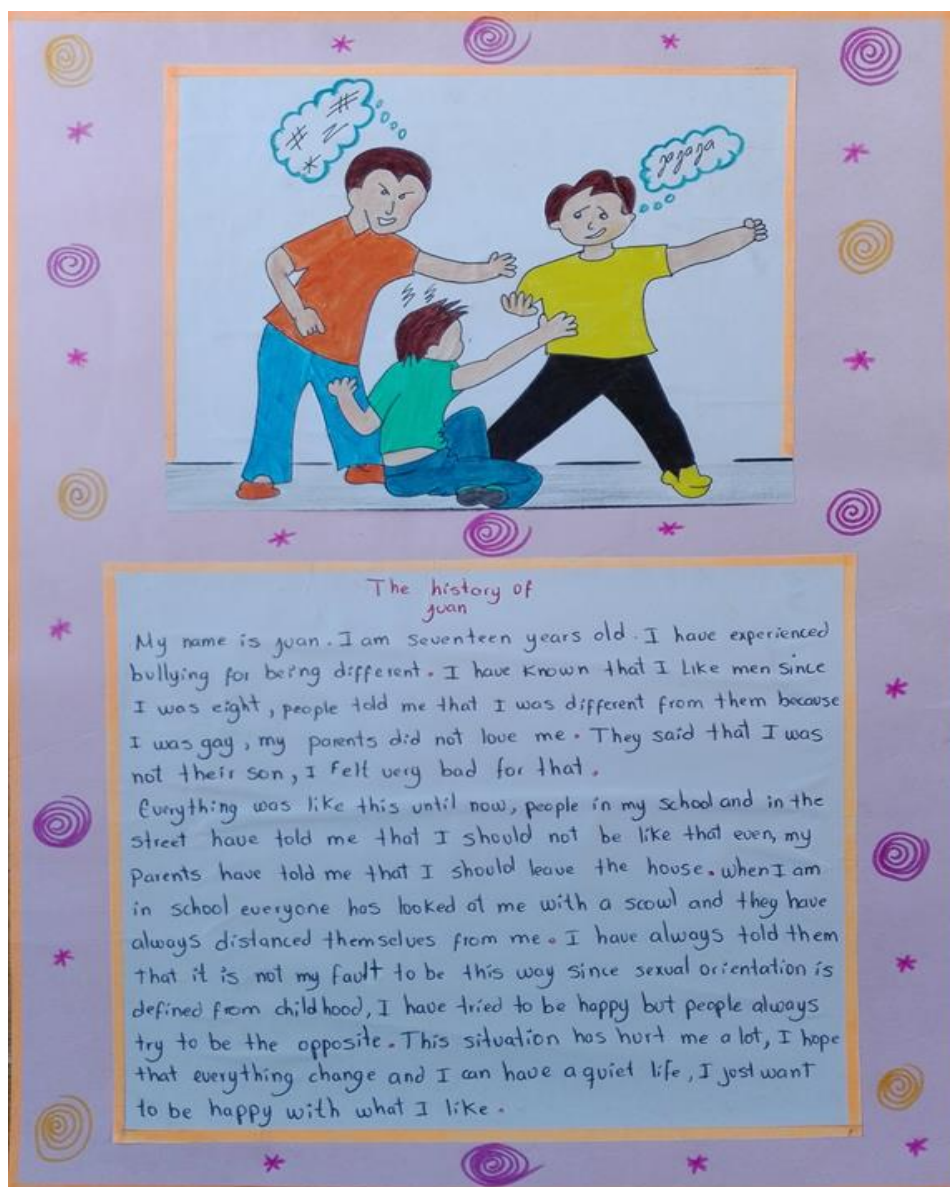 # #
z
*
jajaja
The history of
juan
My name is juan. I am seventeen years old. I have experienced
bullying for being different. I have known that I like men since
I was eight, people told me that I was different from them because
I was gay, my parents did not love me. They said that I was
not their son, I felt very bad for that.
Everything was like this until now, people in my school and in the
street have told me that I should not be like that even, my
parents have told me that I should leave the house. when I am
in school everyone has looked at me with a scowl and they have
always distanced themselves from me. I have always told them
that it is not my fault to be this way since sexual orientation is
defined from childhood, I have tried to be happy but people always
try to be the opposite. This situation has hurt me a lot, I hope
that everything change and I can have a quiet life, I just want
to be happy with what I like.